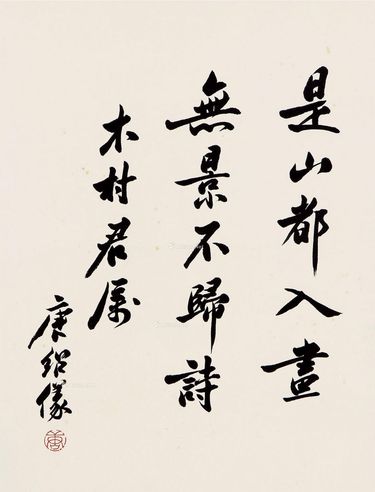 是山都入畫
無景不歸詩
木村君属
唐紹儀